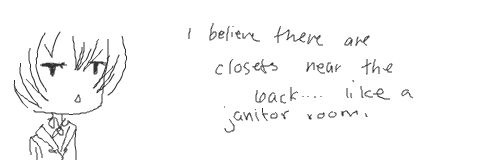 I believe there are
closets near the
back.... like a
janitor room.